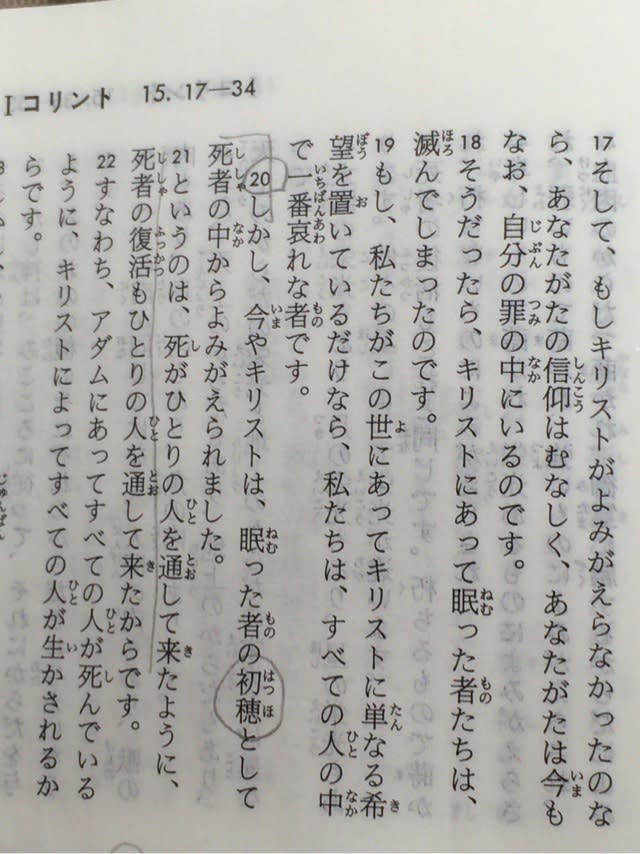 Iコリント 15. 17—34
17 そして、もしキリストがよみがえらなかったのな
ら、あなたがたの信仰はむなしく、あなたがたは今も
なお、自分の罪の中にいるのです。
18 そうだったら、キリストにあって眠った者たちは、
滅んでしまったのです。
19 もし、私たちがこの世にあってキリストに単なる希
望を置いているだけなら、私たちは、すべての人の中
で一番哀れな者です。
20 しかし、今やキリストは、眠った者の初穂として
死者の中からよみがえられました。
21 というのは、死がひとりの人を通して来たように、
死者の復活もひとりの人を通して来たからです。
22 すなわち、アダムにあってすべての人が死んでいる
ように、キリストによってすべての人が生かされるか
らです。